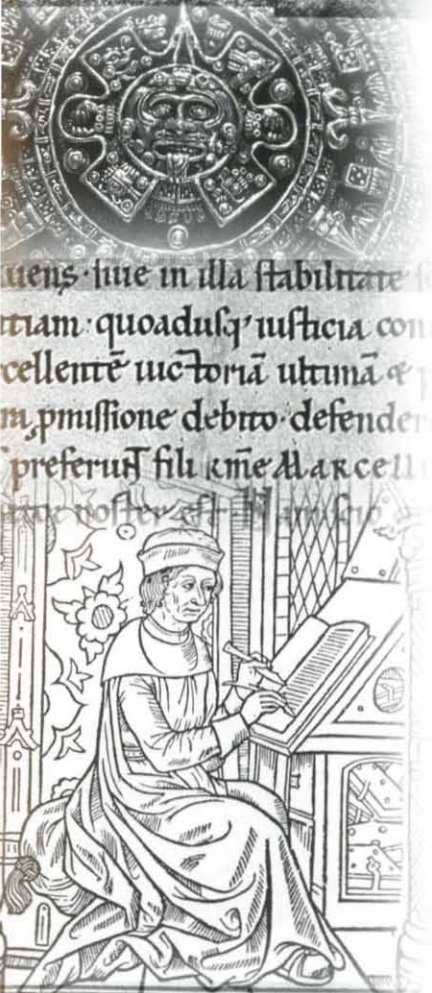 uens· siue in illa stabilitate
tiam· quoadusq' iusticia con
cellentē uictoriā ultimā &
m, pmissione debito· defender
preferunt fili kme Marcell